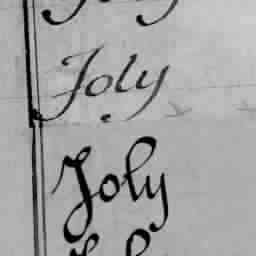 Joly
Joly